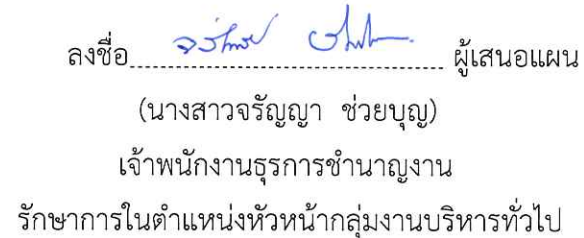 ลงชื่อ........................................ ผู้เสนอแผน
(นางสาวจรัญญา ช่วยบุญ)
เจ้าพนักงานธุรการชำนาญงาน
รักษาการในตำแหน่งหัวหน้ากลุ่มงานบริหารทั่วไป